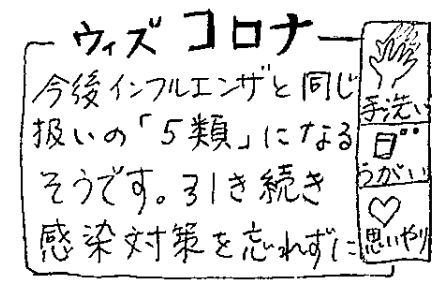 ウィズコロナ
今後インフルエンザと同じ
扱いの「5類」になる
そうです。引き続き
感染対策を忘れずに
手洗い
うがい
思いやり